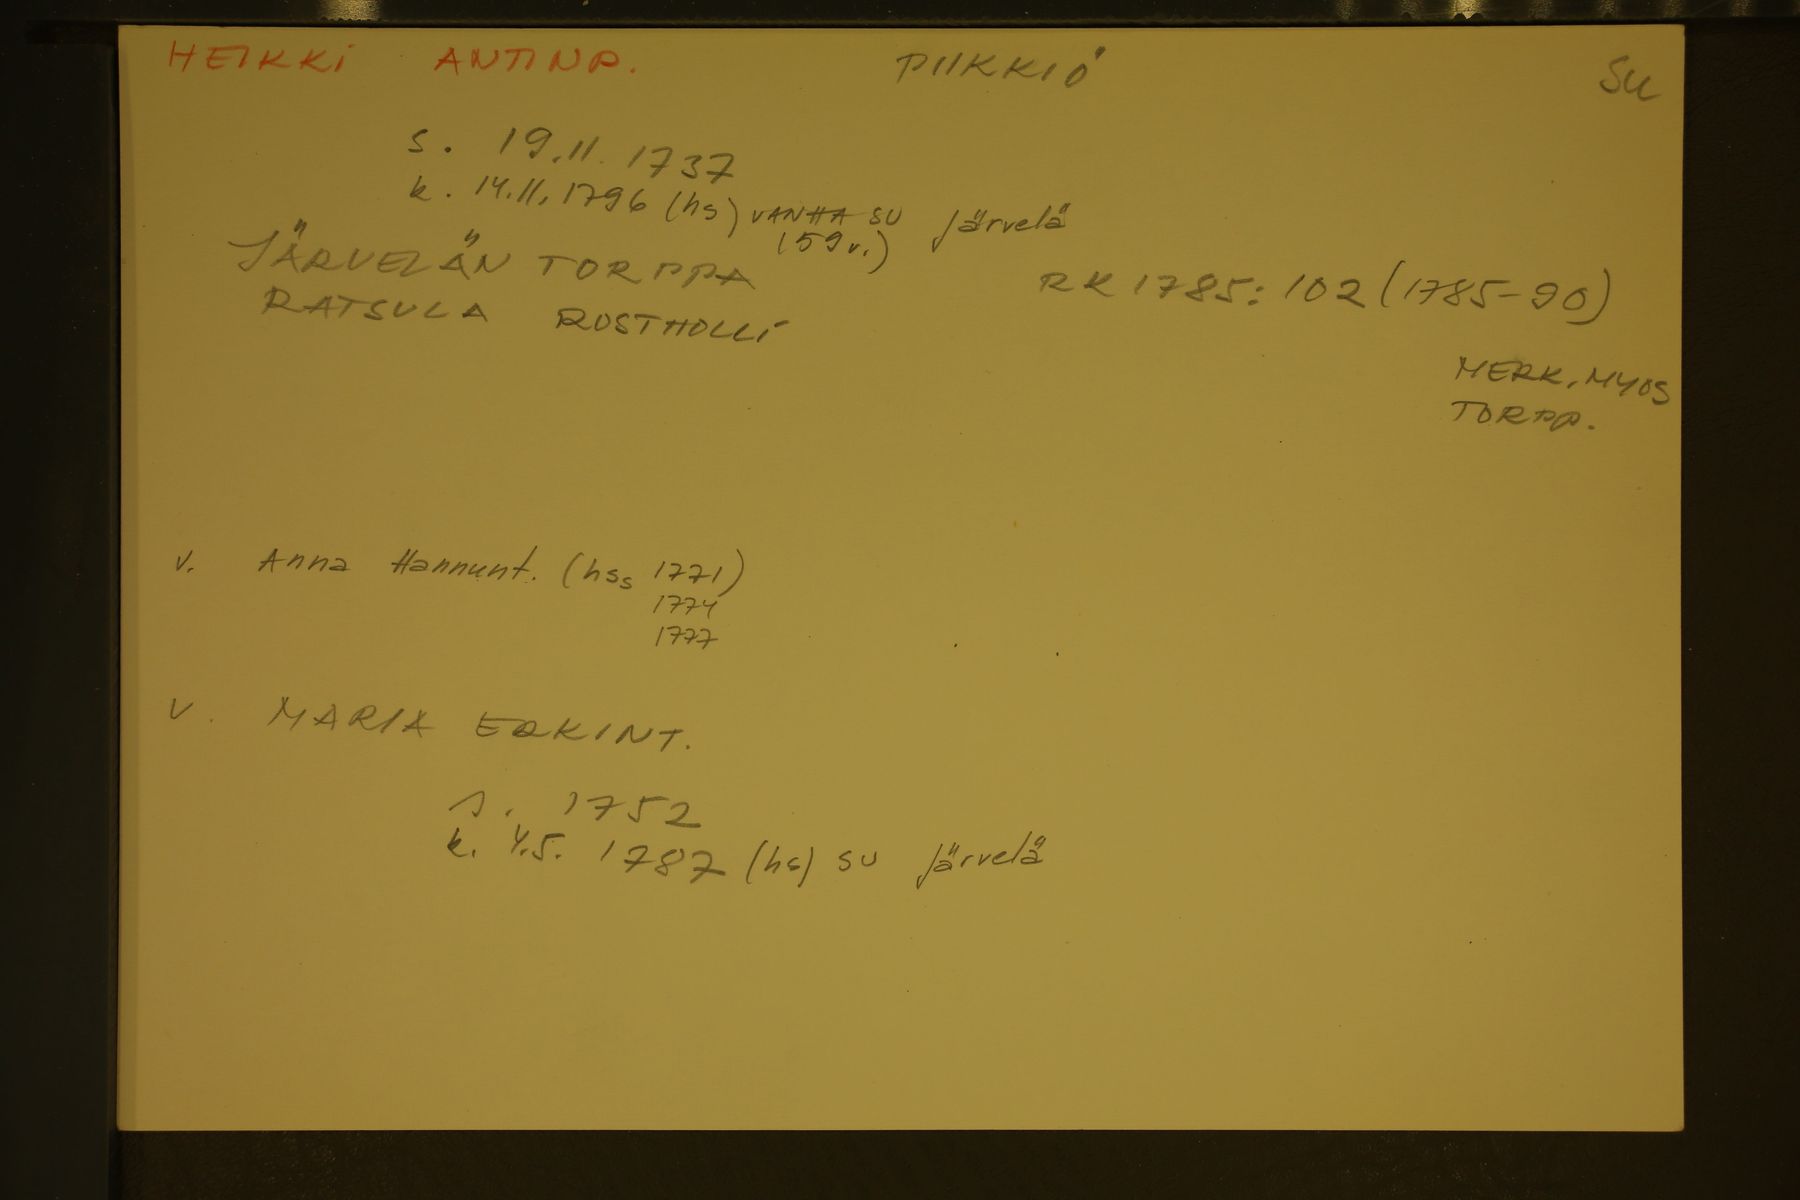 HEIKKI ANTINP. PIIKKIÖ SU
s. 19.11.1737
k. 14.11.1796 (hs) VANHA SU Järvelä
(59 v.)
JÄRVELÄN TORPPA
RK 1785: 102 (1785-90)
RATSULA RUSTHOLLI
MERK. MYÖS
TORPP.
v. Anna Hannunt. (hss 1771)
1774
1777
V. MARIA ERKINT.
s. 1752
k. 4.5. 1787 (hs) SU Järvelä